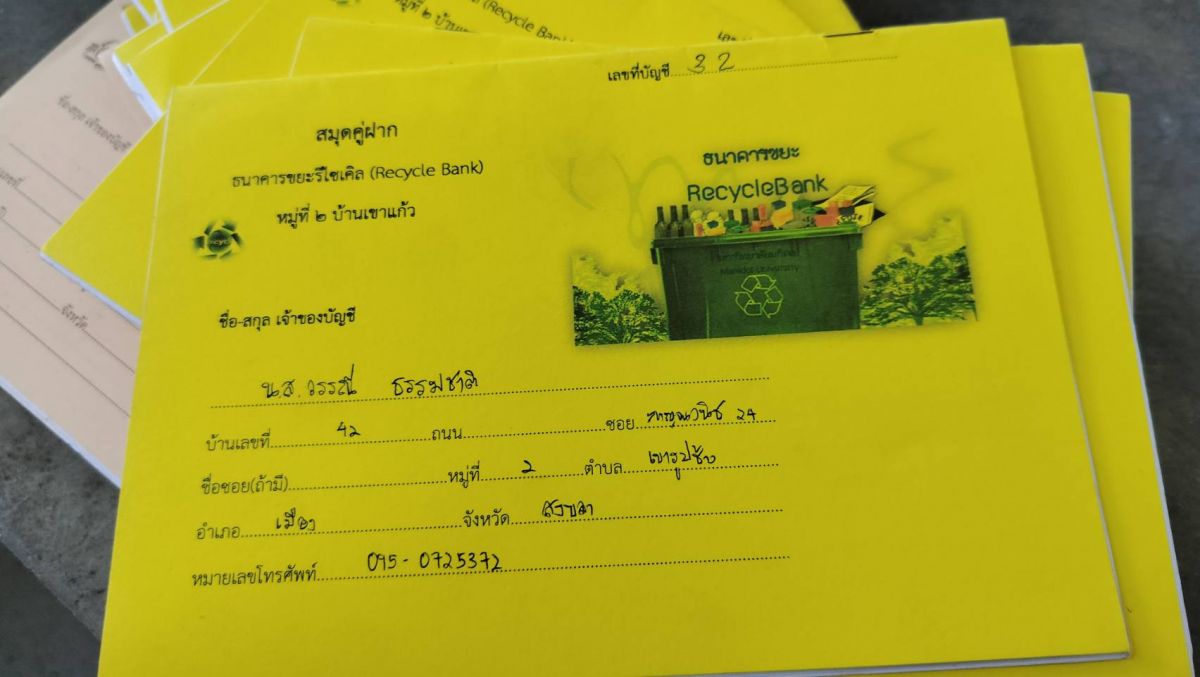 (Recycle Bank)
เลขที่บัญชี 32
สมุดคู่ฝาก
ธนาคารขยะรีไซเคิล (Recycle Bank)
หมู่ที่ ๒ บ้านเขาแก้ว
ธนาคารขยะ
RecycleBank
มหาวิทยาลัยมหิดล
Mahidol University
recycle
ชื่อ-สกุล เจ้าของบัญชี
น.ส. วรรณี ธรรมชาติ
บ้านเลขที่ 42 ถนน ซอย กาญจนวนิช 24
ชื่อซอย(ถ้ามี) หมู่ที่ 2 ตำบล เขารูปช้าง
อำเภอ เมือง จังหวัด สงขลา
หมายเลขโทรศัพท์ 095-0725372
ชื่อ-สกุล เจ้าของบัญชี
จังหวัด